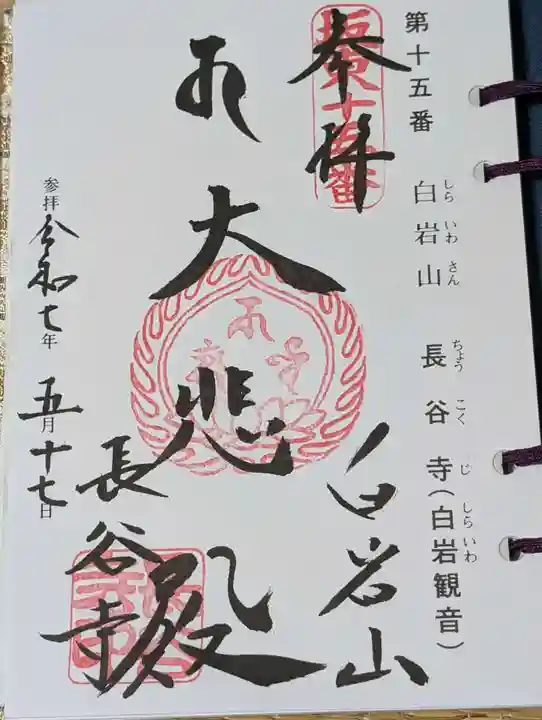 第十五番 白岩山 長谷寺(白岩観音)
しらいわさん ちょうこくじ しらいわ
奉拝
坂東十五番
白岩山
大悲殿
長谷寺
参拝 令和七年 五月十七日